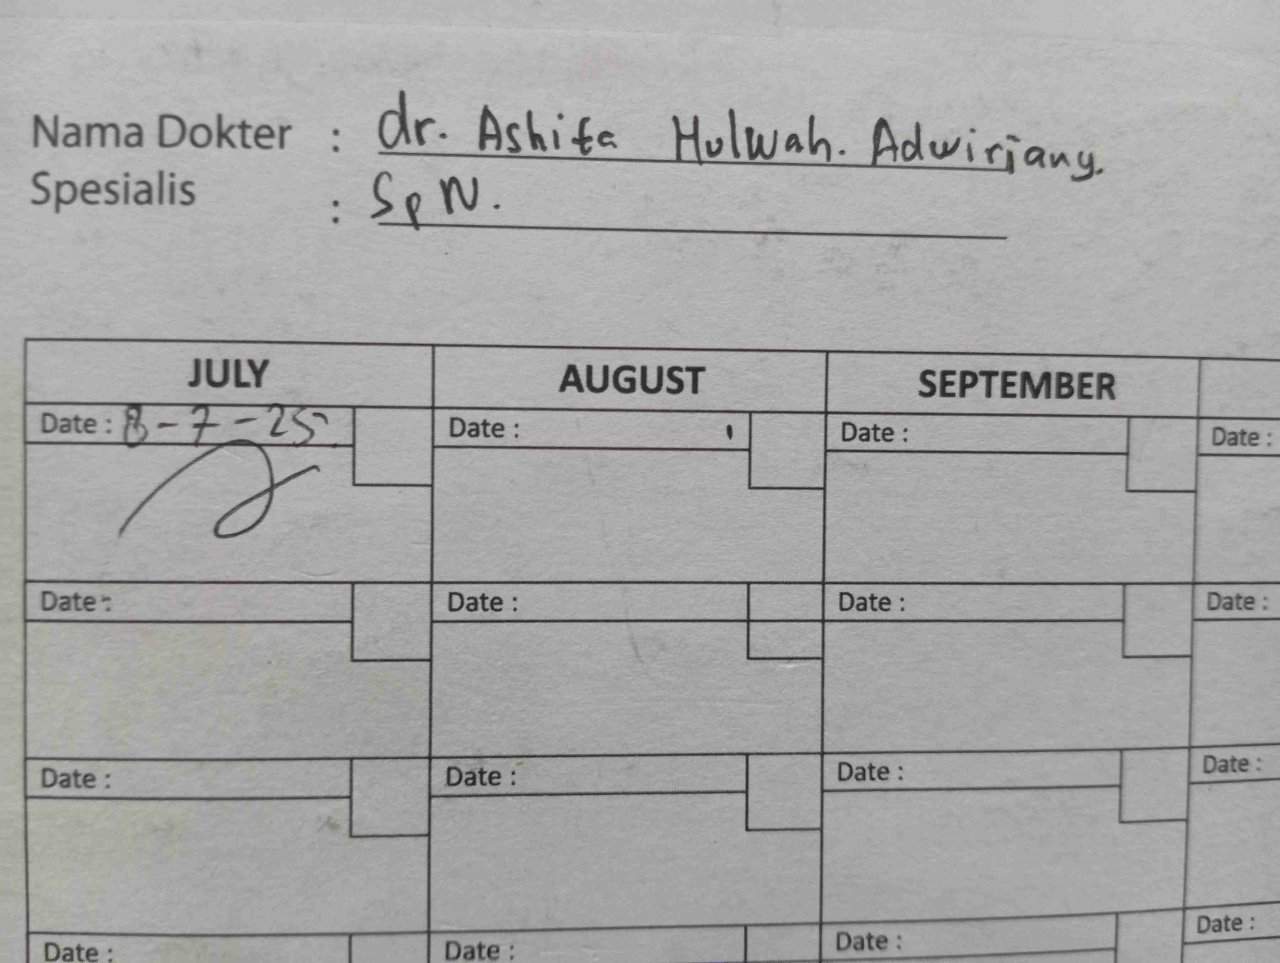 Nama Dokter : dr. Ashita Hulwah. Adwirjany.
Spesialis : Sp N.
JULY AUGUST SEPTEMBER
Date : 8-7-25 Date : Date : Date :
Date : Date : Date : Date :
Date : Date : Date : Date :
Date : Date : Date : Date :